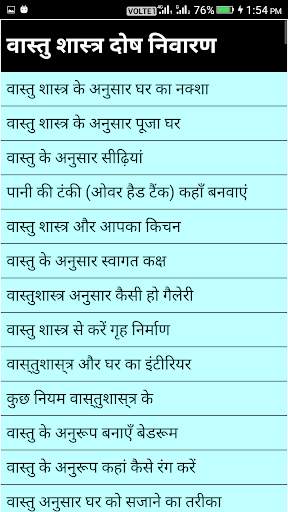 VOLTE 4G 76% 1:54 PM
वास्तु शास्त्र दोष निवारण
वास्तु शास्त्र के अनुसार घर का नक्शा
वास्तु शास्त्र के अनुसार पूजा घर
वास्तु के अनुसार सीढ़ियां
पानी की टंकी (ओवर हैड टैंक) कहाँ बनवाएं
वास्तु शास्त्र और आपका किचन
वास्तु के अनुसार स्वागत कक्ष
वास्तुशास्त्र अनुसार कैसी हो गैलेरी
वास्तु शास्त्र से करें गृह निर्माण
वास्‌तुशास्‌त्र और घर का इंटीरियर
कुछ नियम वास्‌तुशास्‌त्र के
वास्तु के अनुरूप बनाएँ बेडरूम
वास्तु के अनुरूप कहां कैसे रंग करें
वास्तु अनुसार घर को सजाने का तरीका